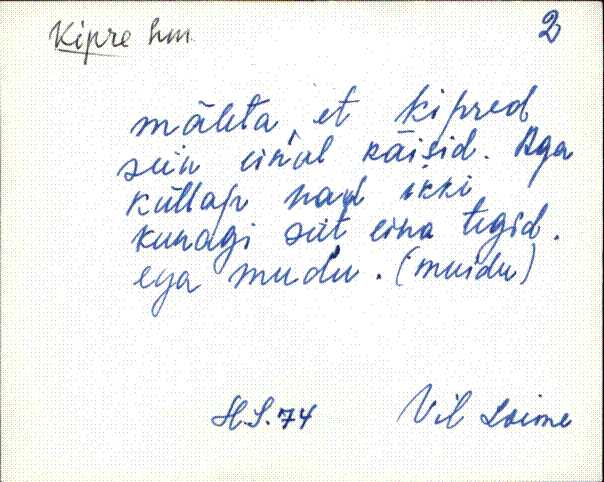 Kipre hm
2
mäleta, et kipred
siin einal käisid. Aga
küllap nad ikki
kunagi siit eina tegid.
ega mudu. (muidu)
H.S.74 Vil Loime